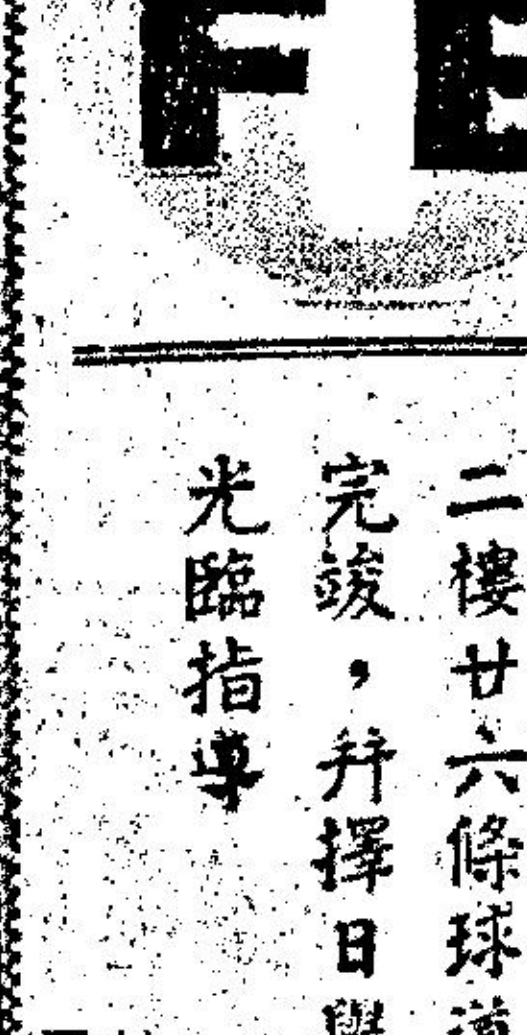 FE
二樓廿六條球道
完竣，幷擇日
光臨指導